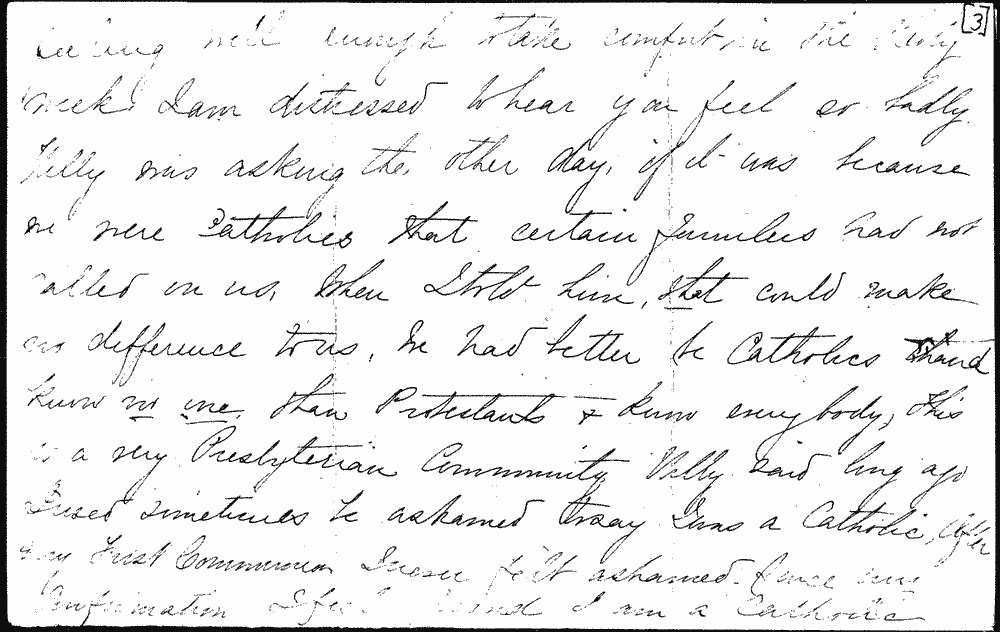 [3]
well enough to take comfort in the Holy
week. I am distressed to hear you feel so badly
Willy was asking the other day, if it was because
we were Catholics that certain families had not
called on us, When I told him, that could make
no difference to us, We had better be Catholics and
know no one, than Protestants & know everybody, this
is a very Presbyterian Community Willy said long ago
I used sometimes to be ashamed to say I was a Catholic, After
my First Communion I never felt ashamed. Since my
Confirmation I feel proud I am a Catholic